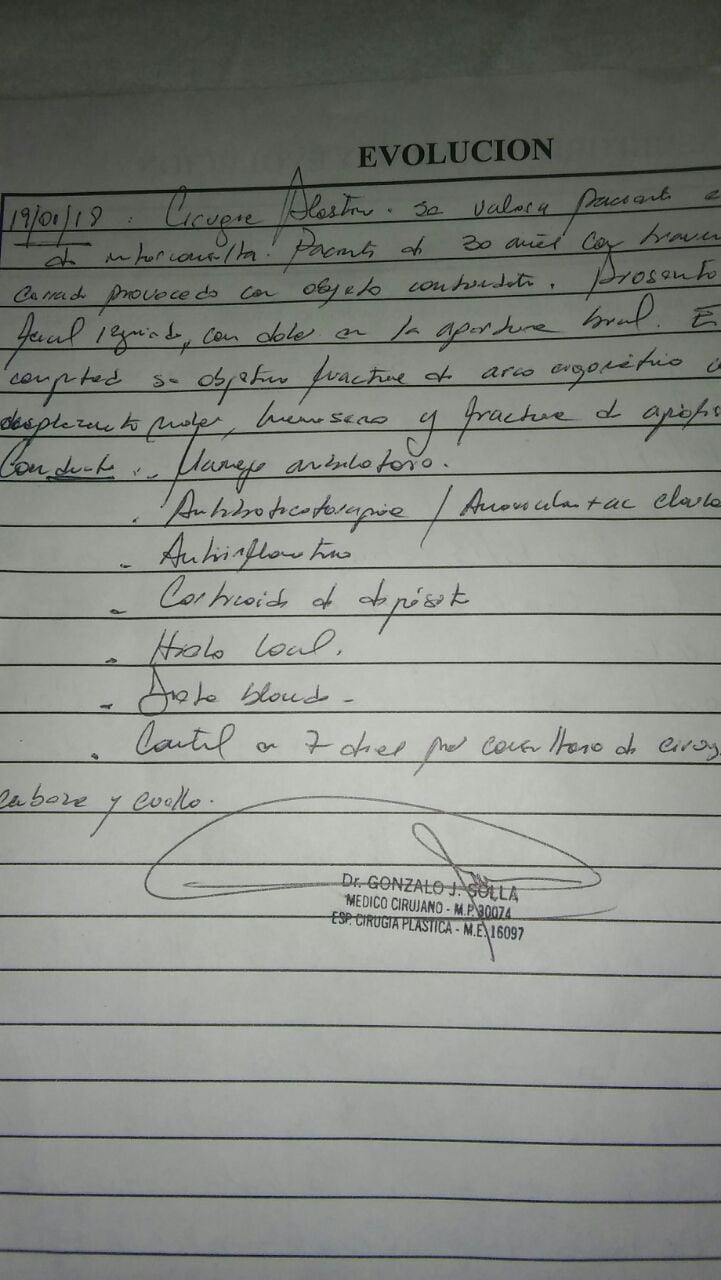 EVOLUCION
19/01/18 : Cirugía Plástica. se valora paciente
de interconsulta. Paciente de 30 años con
cerrado provocado con objeto contundente. Presenta
facial izquierdo, con dolor en la apertura bucal.
computada se objetiva fractura de arco cigomático
desplazamiento y fractura de apófisis
Conducta : - Manejo ambulatorio.
- Antibioticoterapia / Amoxicilina + ac clavu
- Antiinflamatorio
- Corticoide de depósito
- Hielo local.
- Dieta blanda -
- Control en 7 dias por consultorio de cirug
cabeza y cuello.
Dr. GONZALO J. SOLLA
MEDICO CIRUJANO - M.P. 30074
ESP. CIRUGIA PLASTICA - M.E. 16097